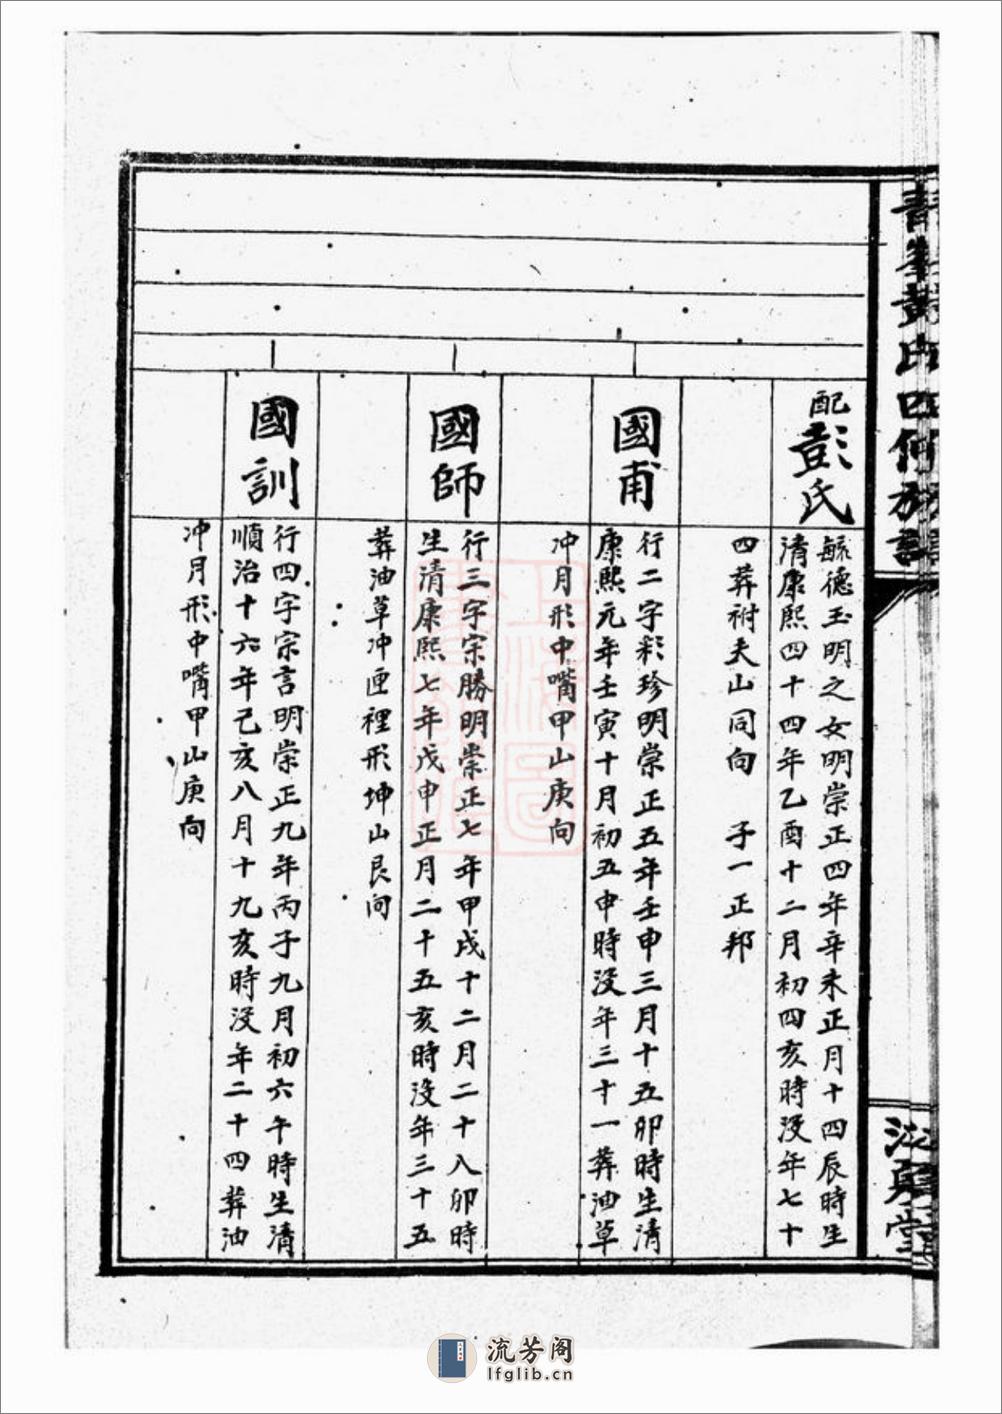 黃氏四修族譜
堂
配彭氏
毓德玉明之女明崇正四年辛未正月十四辰時生
清康熙四十四年乙酉十二月初四亥時没年七十
四葬祔夫山同向　子一正邦
國甫
行二字彩珍明崇正五年壬申三月十五卯時生清
康熙元年壬寅十月初五申時没年三十一葬油草
冲月形中嘴甲山庚向
國師
行三字宗勝明崇正七年甲戌十二月二十八卯時
生清康熙七年戊申正月二十五亥時没年三十五
葬油草冲匣裡形坤山艮向
國訓
行四字宗言明崇正九年丙子九月初六午時生清
順治十六年己亥八月十九亥時没年二十四葬油
冲月形中嘴甲山庚向
流芳阁
lfglib.cn